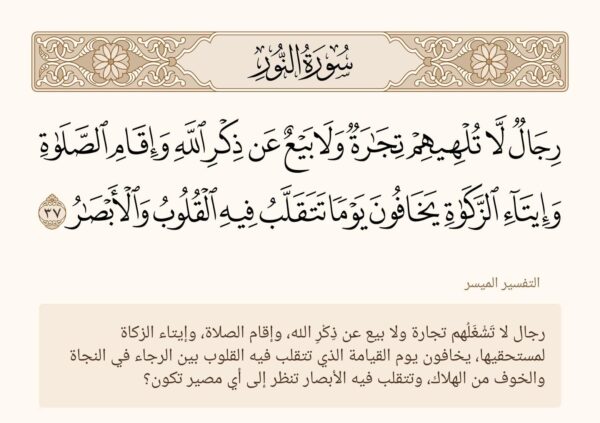 سُورَةُ النُّورِ
رِجَالٌ لَّا تُلْهِيهِمْ تِجَـٰرَةٌ وَلَا بَيْعٌ عَن ذِكْرِ ٱللَّهِ وَإِقَامِ ٱلصَّلَوٰةِ
وَإِيتَآءِ ٱلزَّكَوٰةِ يَخَافُونَ يَوْمًا تَتَقَلَّبُ فِيهِ ٱلْقُلُوبُ وَٱلْأَبْصَـٰرُ ٣٧
التفسير الميسر
رجال لا تَشْغَلُهم تجارة ولا بيع عن ذِكْرِ الله، وإقام الصلاة، وإيتاء الزكاة
لمستحقيها، يخافون يوم القيامة الذي تتقلب فيه القلوب بين الرجاء في النجاة
والخوف من الهلاك، وتتقلب فيه الأبصار تنظر إلى أي مصير تكون؟